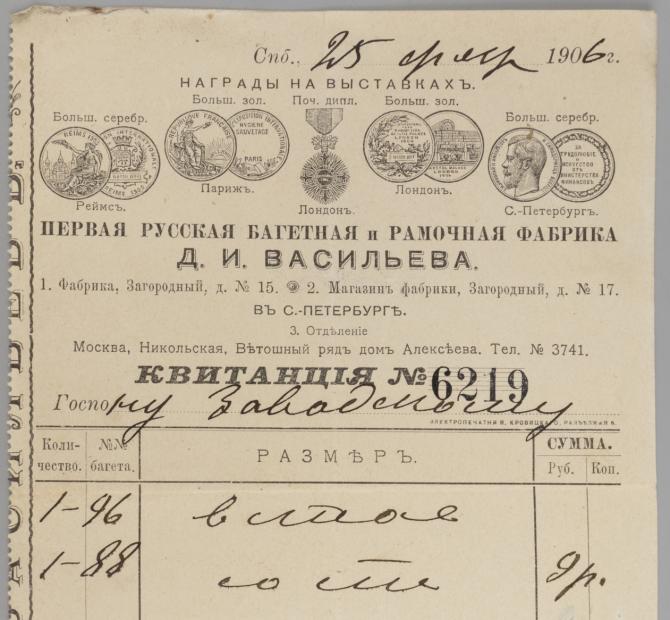 Спб., 25 февр 1906 г.
НАГРАДЫ НА ВЫСТАВКАХЪ.
Больш. серебр. Больш. зол. Поч. дипл. Больш. зол. Больш. серебр.
Реймсъ. Парижъ. Лондонъ. Лондонъ. С.-Петербургъ.
ПЕРВАЯ РУССКАЯ БАГЕТНАЯ и РАМОЧНАЯ ФАБРИКА
Д. И. ВАСИЛЬЕВА.
1. Фабрика, Загородный, д. № 15. 2. Магазинъ фабрики, Загородный, д. № 17.
ВЪ С.-ПЕТЕРБУРГѢ.
3. Отдѣленіе
Москва, Никольская, Вѣтошный рядъ домъ Алексѣева. Тел. № 3741.
КВИТАНЦІЯ № 6219
Господину
ЭЛЕКТРОПЕЧАТНЯ Я. КРОВИЦКАГО, РАЗЪѢЗЖАЯ 6.
Коли-чество. №№ багета. РАЗМѢРЪ. СУММА.
Руб. Коп.
1-96
1-88 со 9р.